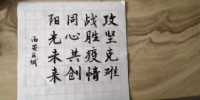 攻坚克难
战胜疫情
同心共创
阳光未来